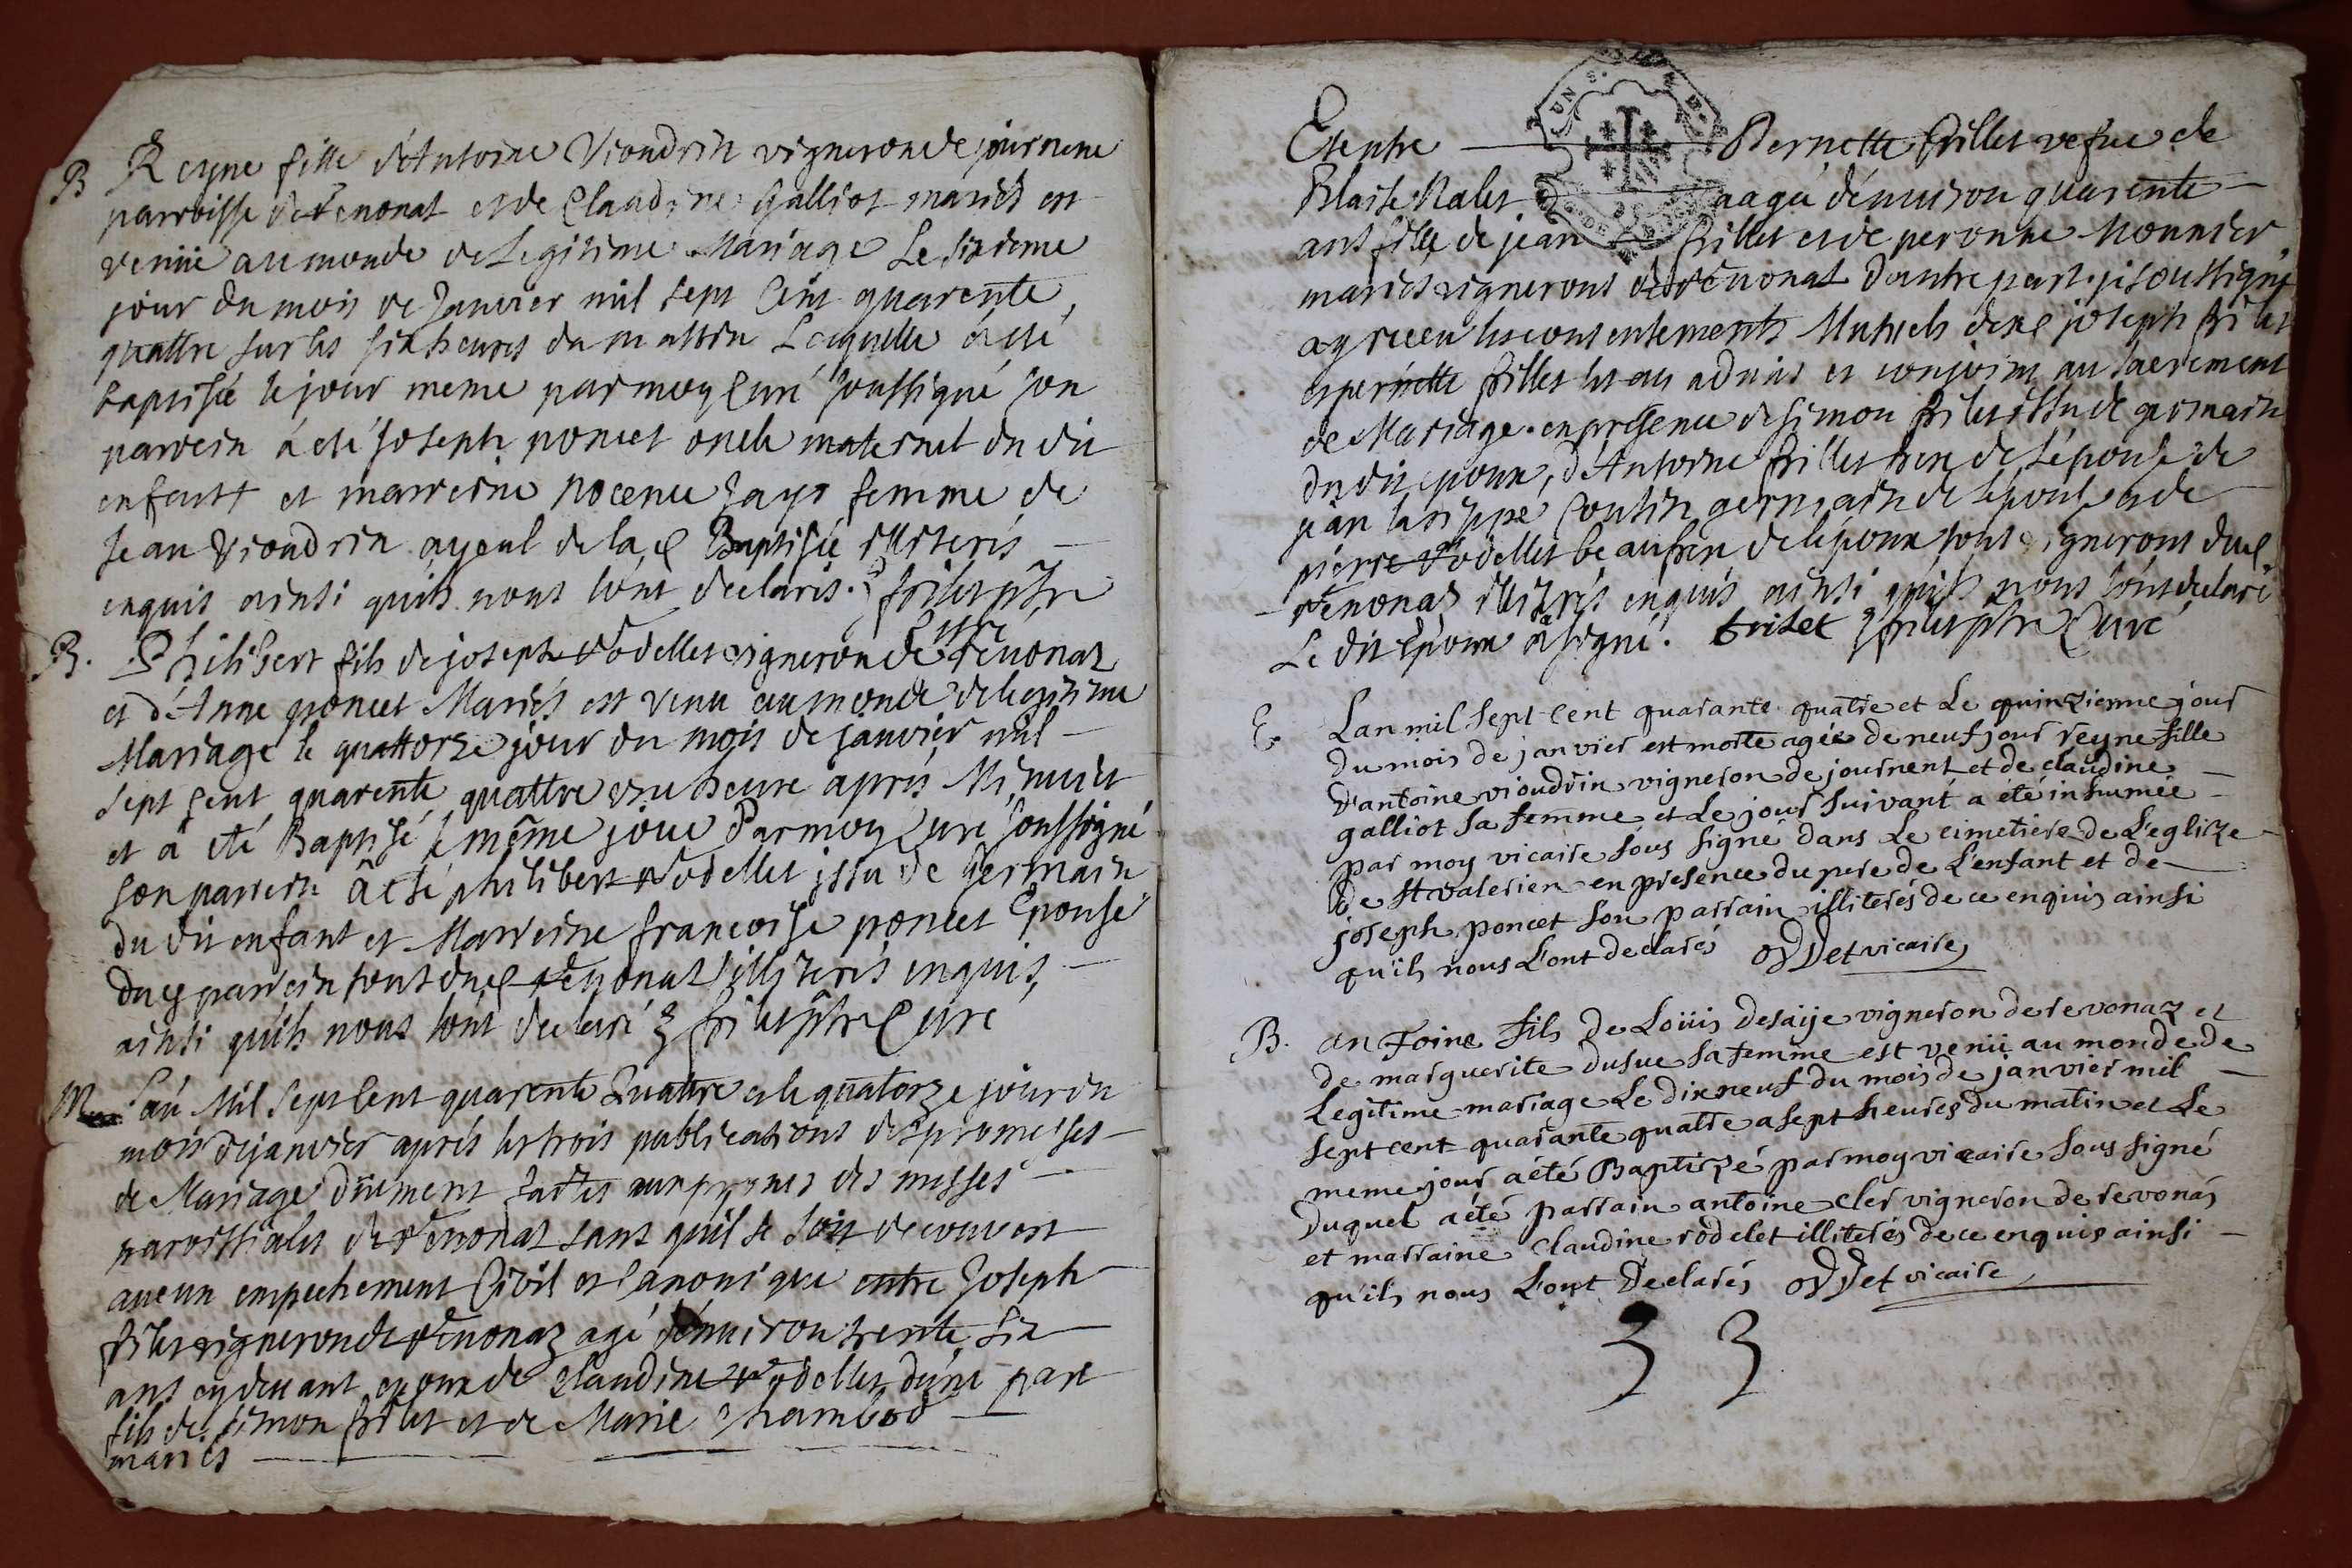 B Reyne fille d'Antoine Vioudrin vigneron de journent
parroisse de revonat et de Claudine Galliot mariés est
venüe au monde de Legitime Mariage Le sixieme
jour du mois de Janvier mil sept Cent quarente
quattre sur les six heures du mattin Laquelle à eté
baptisée le jour meme par moy Curé soussigné son
parrein à eté Joseph poncet oncle maternel du dit
enfant et marreine femme de
Jean Vioudrin ayeul de la Baptisée illiterés
enquis ainsi quils nous l'ont declarés. frilet ptre
Curé
B. Philibert fils de joseph rodellet vigneron de revonaz
et d'Anne poncet Mariés est venu au monde de legitime
Mariage le quattorze jour du mois de janvier mil
sept cent quarente quattre une heure aprés Minuit
et à eté Baptisé le même jour Par moy Curé soussigné
son parrein à eté philibert rodellet issu de germain
du dit enfant et Marreine francoise poncet Epouse
du parrein tous du revonat illiterés enquis
ainsi quils nous lont declaré frilet ptre Curé
M L'an Mil Sept Cent quarente Quattre et le quatorze jour du
mois de janvier aprés les trois publications des promesses
de Mariage düement faites aux prones des messes
parroissiales de revonat sans quil se soit decouvert
aucun empechement Civil et Canonique entre Joseph
frilet vigneron de revonaz agé d'environ trente six
ans cy devant epoux de Claudine rodellet d'une part
fils de simon frilet et de Marie Chambod
mariés
Et entre Pernette frillet vefue de
Blaise Nalet aagée d'environ quarente
ans fille de jean frillet et de peronne Monnier
mariés vignerons de revonat d'autre part. je soussigné
ay receu les consentements Mutuels de joseph frilet
et pernette frillet les ay admis et conjoins au sacrement
de Mariage. en presence de simon frilet issu de germain
du dit epoux, d'Antoine frillet frere de l'épouse de
jean Cousin germain de lepouse et de
pierre rodellet beaufrere de lépoux tous vignerons du
revonaz illiterés enquis ainsi quils nous lont declaré
Le dit Epoux a signé. frilet frilet ptre Curé
E. Lan mil sept cent quarante quatre et Le quinzieme jour
du mois de janvier est morte agée de neuf jour reyne fille
d'antoine vioudrin vigneron de journent et de claudine
galliot sa femme et Le jour suivant a eté inhumée
par moy vicaire sous signé dans Le cimetiere de L'eglize
de st valerien en presence du pere de L'enfant et de
joseph poncet son parrain illiterés de ce enquis ainsi
qu'ils nous L'ont declarés oddet vicaire
B. anToine fils de Loüis desaije vigneron de revonaz et
de marguerite dusue sa femme est venü au monde de
Legitime mariage Le dixneuf du mois de janvier mil
sept cent quarante quatre a sept heures du matin et Le
meme jour a été Baptizé par moy vicaire sous signé
duquel a eté parrain antoine cler vigneron de revonas
et marraine Claudine rodelet illiterés de ce enquis ainsi
qu'ils nous L'ont Declarés oddet vicaire
33